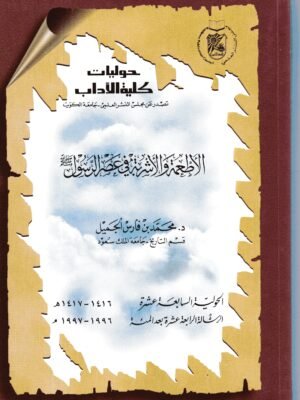 حوليات
كلية الآداب
تصدر عن مجلس النشر العلمي - جامعة الكويت
الأطعمة والأشربة في عصر الرسول ﷺ
د. محمد بن فارس الجميل
قسم التاريخ - جامعة الملك سعود
الحولية السابعة عشرة
١٤١٦ - ١٤١٧ هـ
الرسالة الرابعة عشرة بعد المئة
١٩٩٦ - ١٩٩٧ م